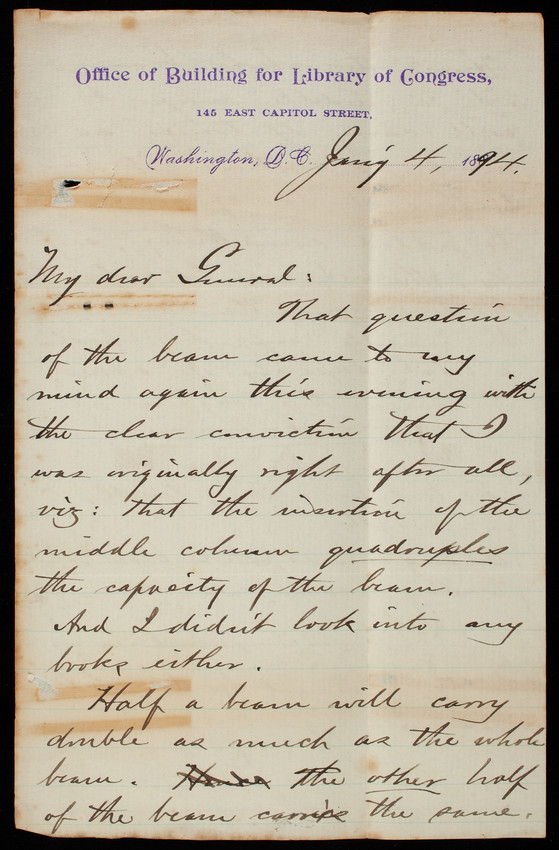 Office of Building for Library of Congress,
145 EAST CAPITOL STREET,
Washington, D.C. Jan'y 4, 1894.
My dear General:
That question
of the beam came to my
mind again this evening with
the clear conviction that I
was originally right after all,
viz: that the insertion of the
middle column quadruples
the capacity of the beam.
And I didn't look into any
books either.
Half a beam will carry
double as much as the whole
beam. Hence the other half
of the beam carries the same.